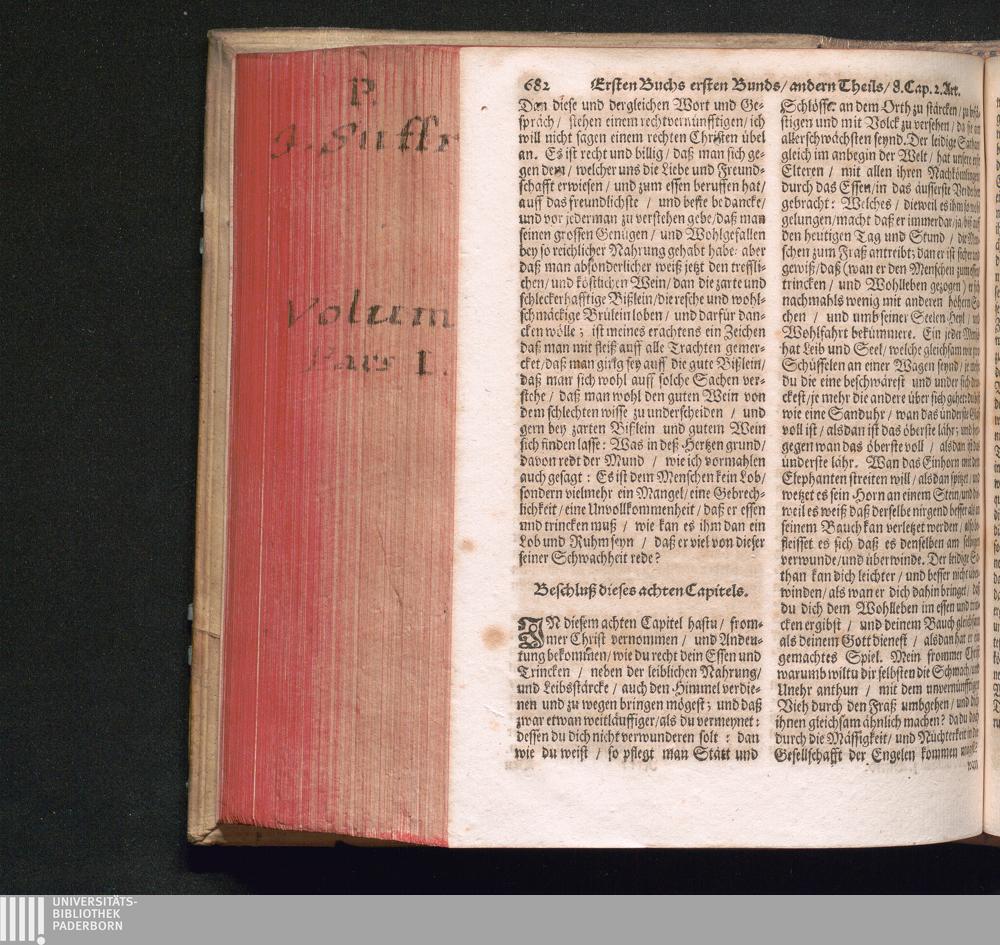 P.
J. Suffr
Volum
Pars I.
682 Ersten Buchs ersten Bunds / andern Theils / 8. Cap. 2. Art.
Dan diese und dergleichen Wort und Ge-
spräch / stehen einem rechtvernünfftigen / ich
will nicht sagen einem rechten Christen übel
an. Es ist recht und billig / daß man sich ge-
gen dem / welcher uns die Liebe und Freund-
schafft erwiesen / und zum essen beruffen hat /
auff das freundlichste / und beste bedancke /
und vor jederman zu verstehen gebe / daß man
seinen grossen Genügen / und Wohlgefallen
bey so reichlicher Nahrung gehabt habe: aber
daß man absonderlicher weiß jetzt den treffli-
chen / und köstlichen Wein / dan die zarte und
schleckerhafftige Bißlein / die resche und wohl-
schmäckige Brülein loben / und darfür dan-
cken wölle; ist meines erachtens ein Zeichen
daß man mit fleiß auff alle Trachten gemer-
cket / daß man girig sey auff die gute Bißlein /
daß man sich wohl auff solche Sachen ver-
stehe / daß man wohl den guten Wein von
dem schlechten wisse zu underscheiden / und
gern bey zarten Bißlein und gutem Wein
sich finden lasse: Was in deß Hertzen grund /
davon redt der Mund / wie ich vormahlen
auch gesagt: Es ist dem Menschen kein Lob /
sondern vielmehr ein Mangel / eine Gebrech-
lichkeit / eine Unvollkommenheit / daß er essen
und trincken muß / wie kan es ihm dan ein
Lob und Ruhm seyn / daß er viel von dieser
seiner Schwachheit rede?
Beschluß dieses achten Capitels.
IN diesem achten Capitel hastu / from-
mer Christ vernommen / und Andeu-
tung bekommen / wie du recht dein Essen und
Trincken / neben der leiblichen Nahrung /
und Leibsstärcke / auch den Himmel verdie-
nen und zu wegen bringen mögest; und daß
zwar etwan weitläuffiger / als du vermeynet:
dessen du dich nicht verwunderen solt: dan
wie du weist / so pflegt man Stätt und
Schlösser an dem Orth zu stärcken / zu
stigen und mit Volck zu versehen / da sie am
allerschwächsten seynd. Der leidige Sathan
gleich im anbegin der Welt / hat unsere
Elteren / mit allen ihren Nachkömlingen
durch das Essen / in das äusserste Verderben
gebracht: Welches / dieweil es ihm so wohl
gelungen / macht daß er immerdar / ja / biß auff
den heutigen Tag und Stund / die Men-
schen zum Fraß antreibt; dan er ist sicher und
gewiß / daß (wan er den Menschen zum essen
trincken / und Wohlleben gezogen) er sich
nachmahls wenig mit anderen höhern Sa-
chen / und umb seiner Seelen Heyl / und
Wohlfahrt bekümmere. Ein jeder Mensch
hat Leib und Seel / welche gleichsam wie zwo
Schüsselen an einer Wagen seynd / je mehr
du die eine beschwärest und under sich dru-
ckest / je mehr die andere über sich gehet: du bist
wie eine Sanduhr / wan das underste Glaß
voll ist / alsdan ist das öberste lähr; und her-
gegen wan das öberste voll / alsdan ist das
underste lähr. Wan das Einhorn mit dem
Elephanten streiten will / alsdan spitzet / und
wetzet es sein Horn an einem Stein / und die-
weil es weiß daß derselbe nirgend besser als an
seinem Bauch kan verletzet werden / also be-
fleisset es sich daß es denselben am selbigen
verwunde / und überwinde. Der leidige Sa-
than kan dich leichter / und besser nicht über-
winden / als wan er dich dahin bringet / daß
du dich dem Wohlleben im essen und trin-
cken ergibst / und deinem Bauch gleichsam
als deinem Gott dienest / alsdan hat er ein
gemachtes Spiel. Mein frommer Christ
warumb wiltu dir selbsten die Schmach / und
Unehr anthun / mit dem unvernünfftigen
Vieh durch den Fraß umbgehen / und dich
ihnen gleichsam ähnlich machen? da du doch
durch die Mässigkeit / und Nüchterkeit in die
Gesellschafft der Engelen kommen magst?
wan
UNIVERSITÄTS-
BIBLIOTHEK
PADERBORN